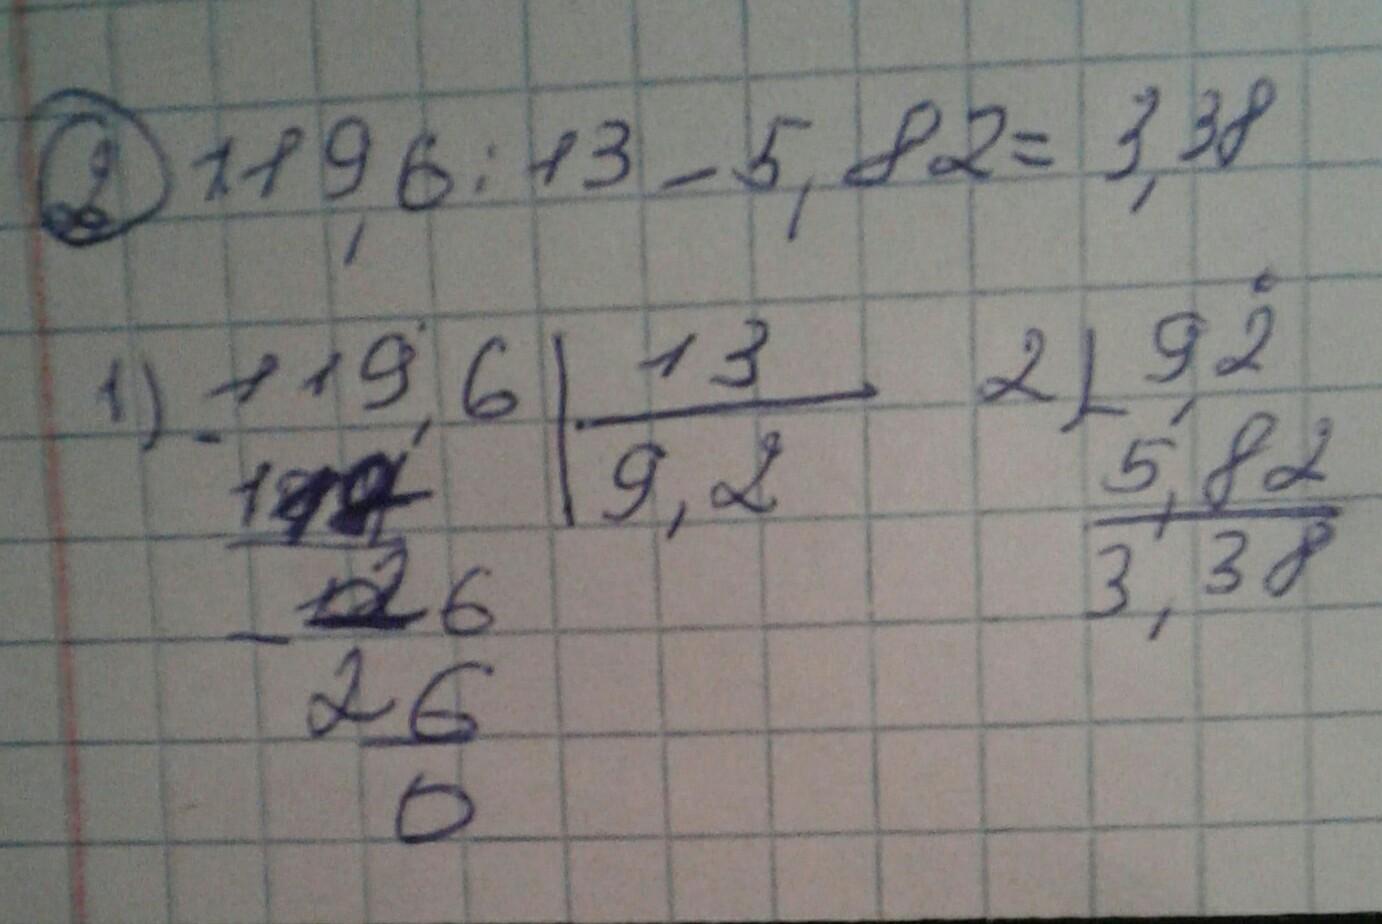 2 119,6:13-5,82=3,38
1) - 119,6 | 13 2) - 9,2
9,2 5,82
26 3,38
- 26
0